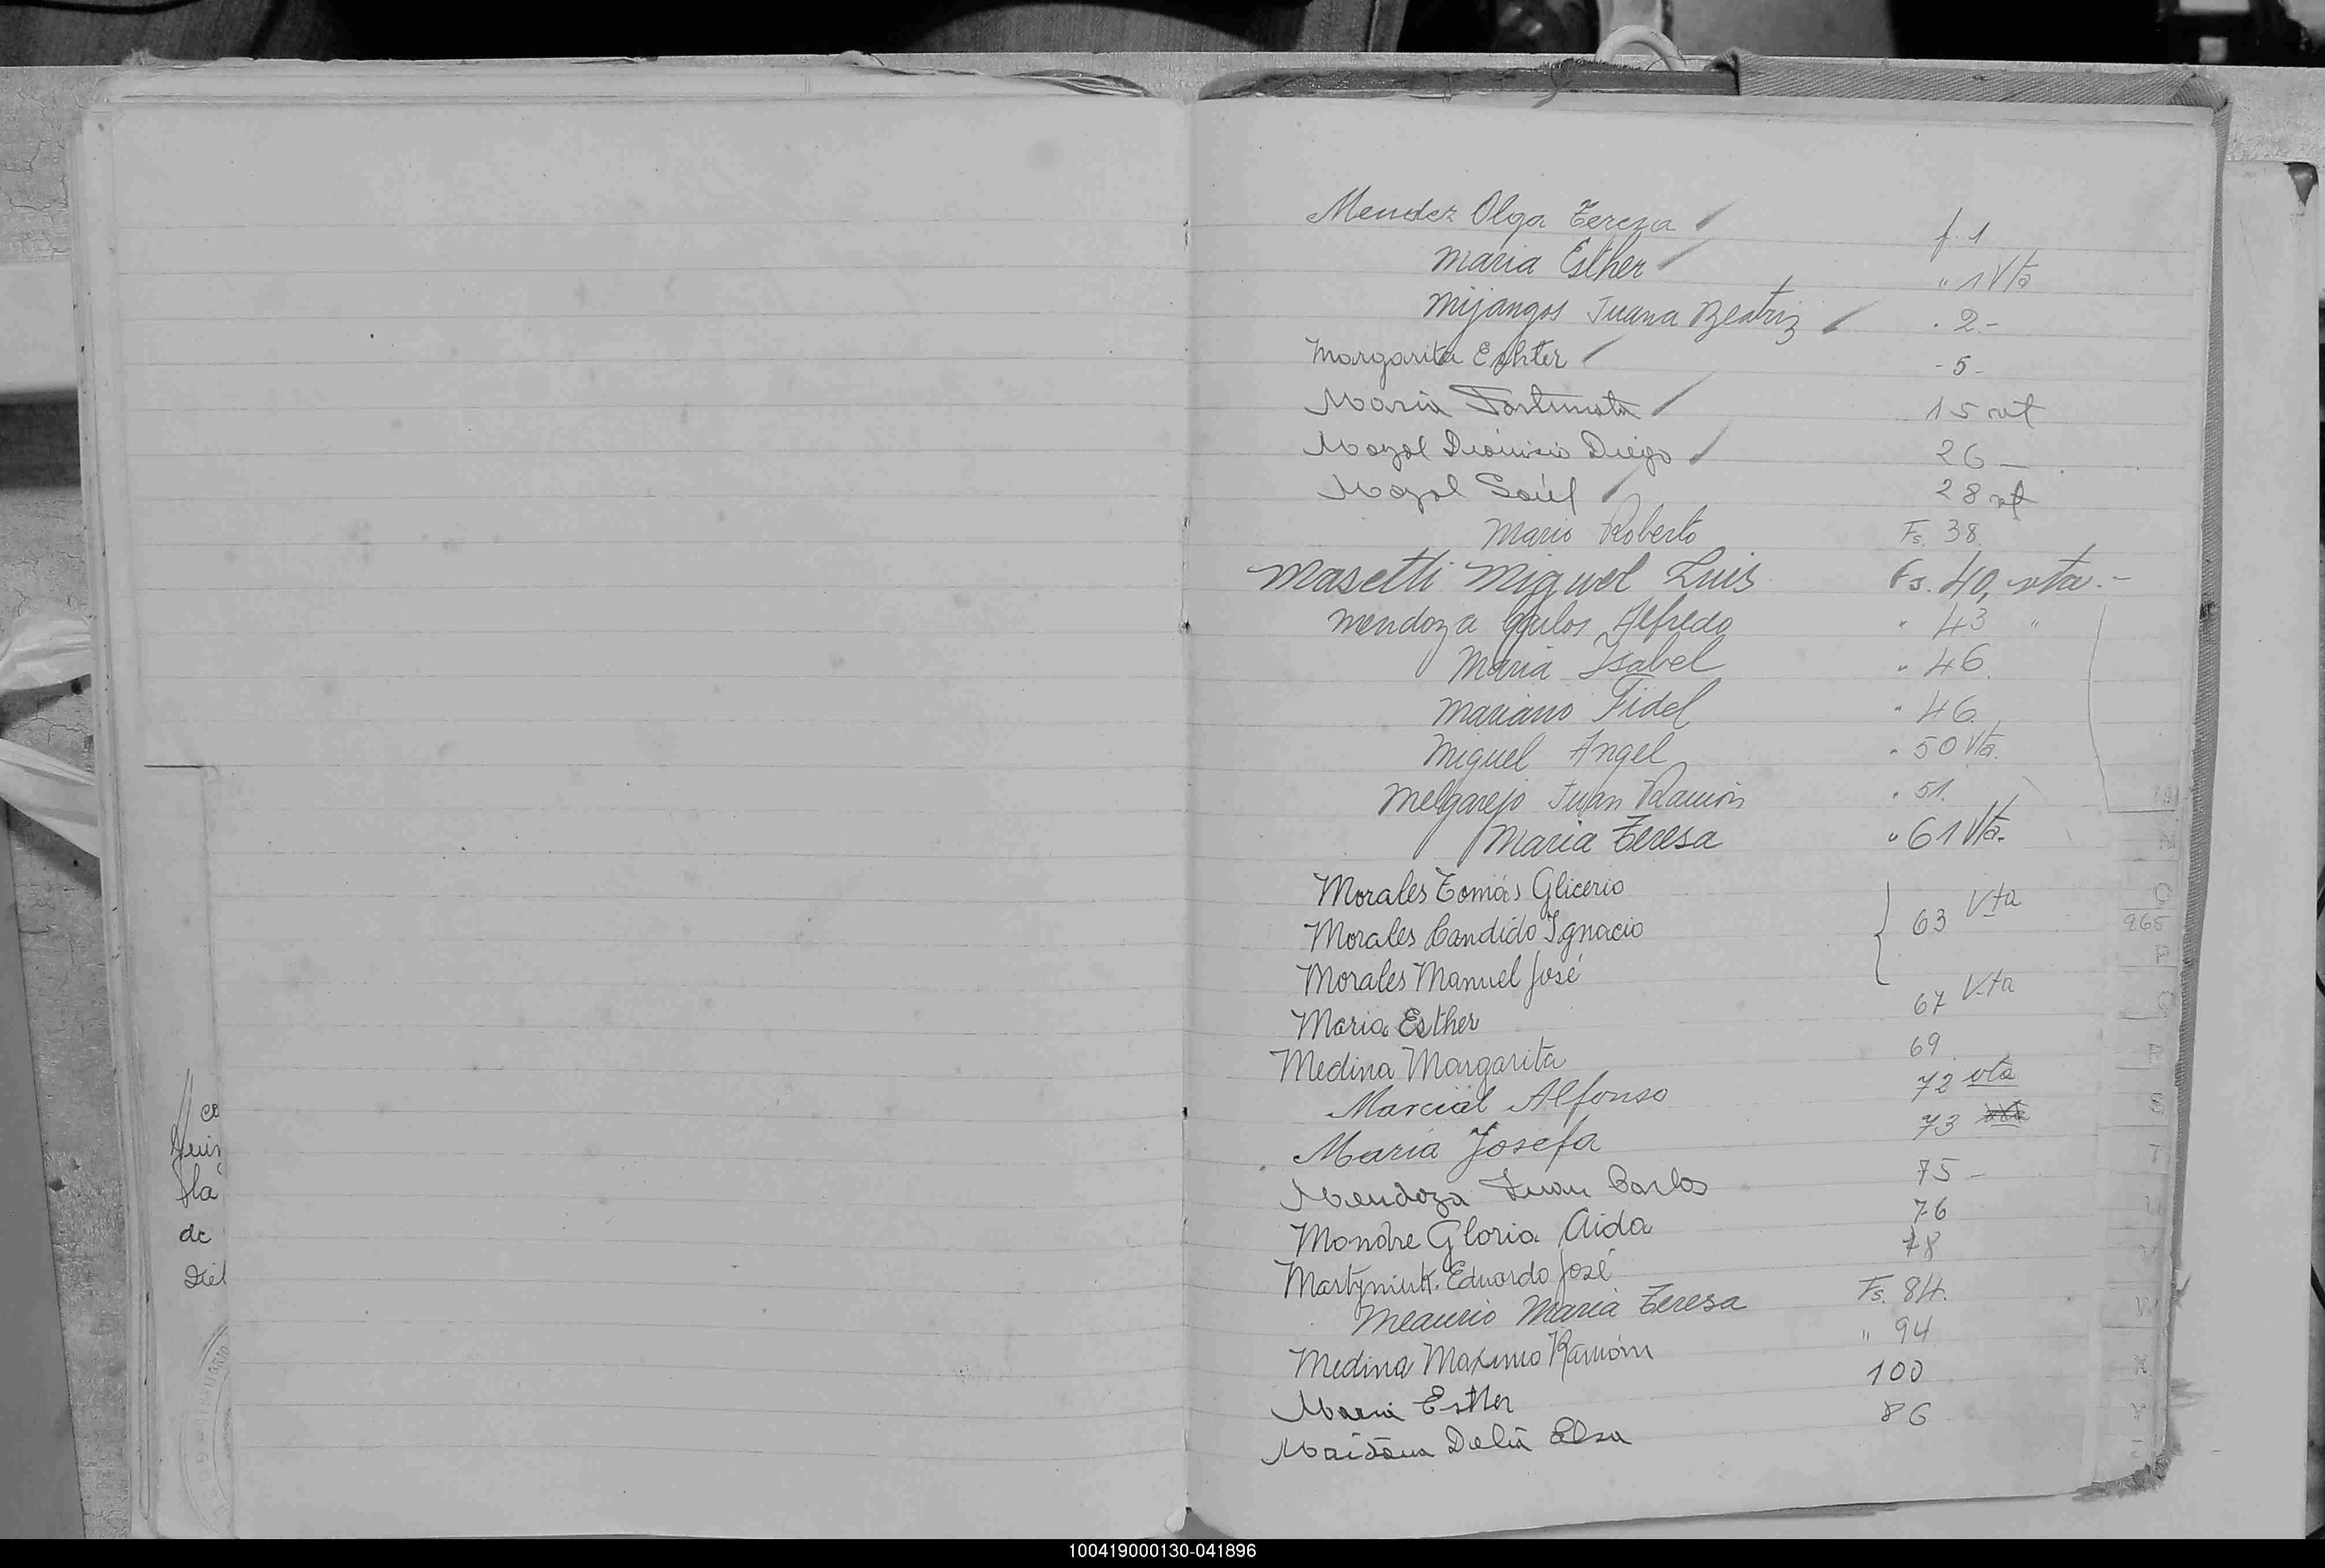 Mendez Olga Teresa f. 1
Maria Esther " 1 Vta
Mijangos Juana Beatriz . 2.-
Margarita Eshter - 5 -
Maria Fortunata 15 vt
Mazal Dionisio Diego 26 —
Mazal Saúl 28 vt
Mario Roberto Fs. 38.
Masetti Miguel Luis Fs. 40, vta.-
Mendoza Carlos Alfredo " 43 "
Maria Isabel " 46.
Mariano Fidel " 46.
Miguel Angel " 50 Vta.
Melgarejo Juan Ramón " 51.
Maria Teresa " 61 Vta.
Morales Tomás Glicerio
Morales Candido Ignacio 63 Vta
Morales Manuel José
Maria Esther 67 Vta
Medina Margarita 69
Marcial Alfonso 72 vta
Maria Josefa 73
Mendoza Juan Carlos 75 -
Mondre Gloria Aida 76
Martyniuk Eduardo José 78
Meaurio Maria Teresa Fs. 84.
Medina Maximo Ramón " 94
Maria Esther 100
Maidana Delia Elsa 86
la
de
965
O
P
Q
S
T
100419000130-041896